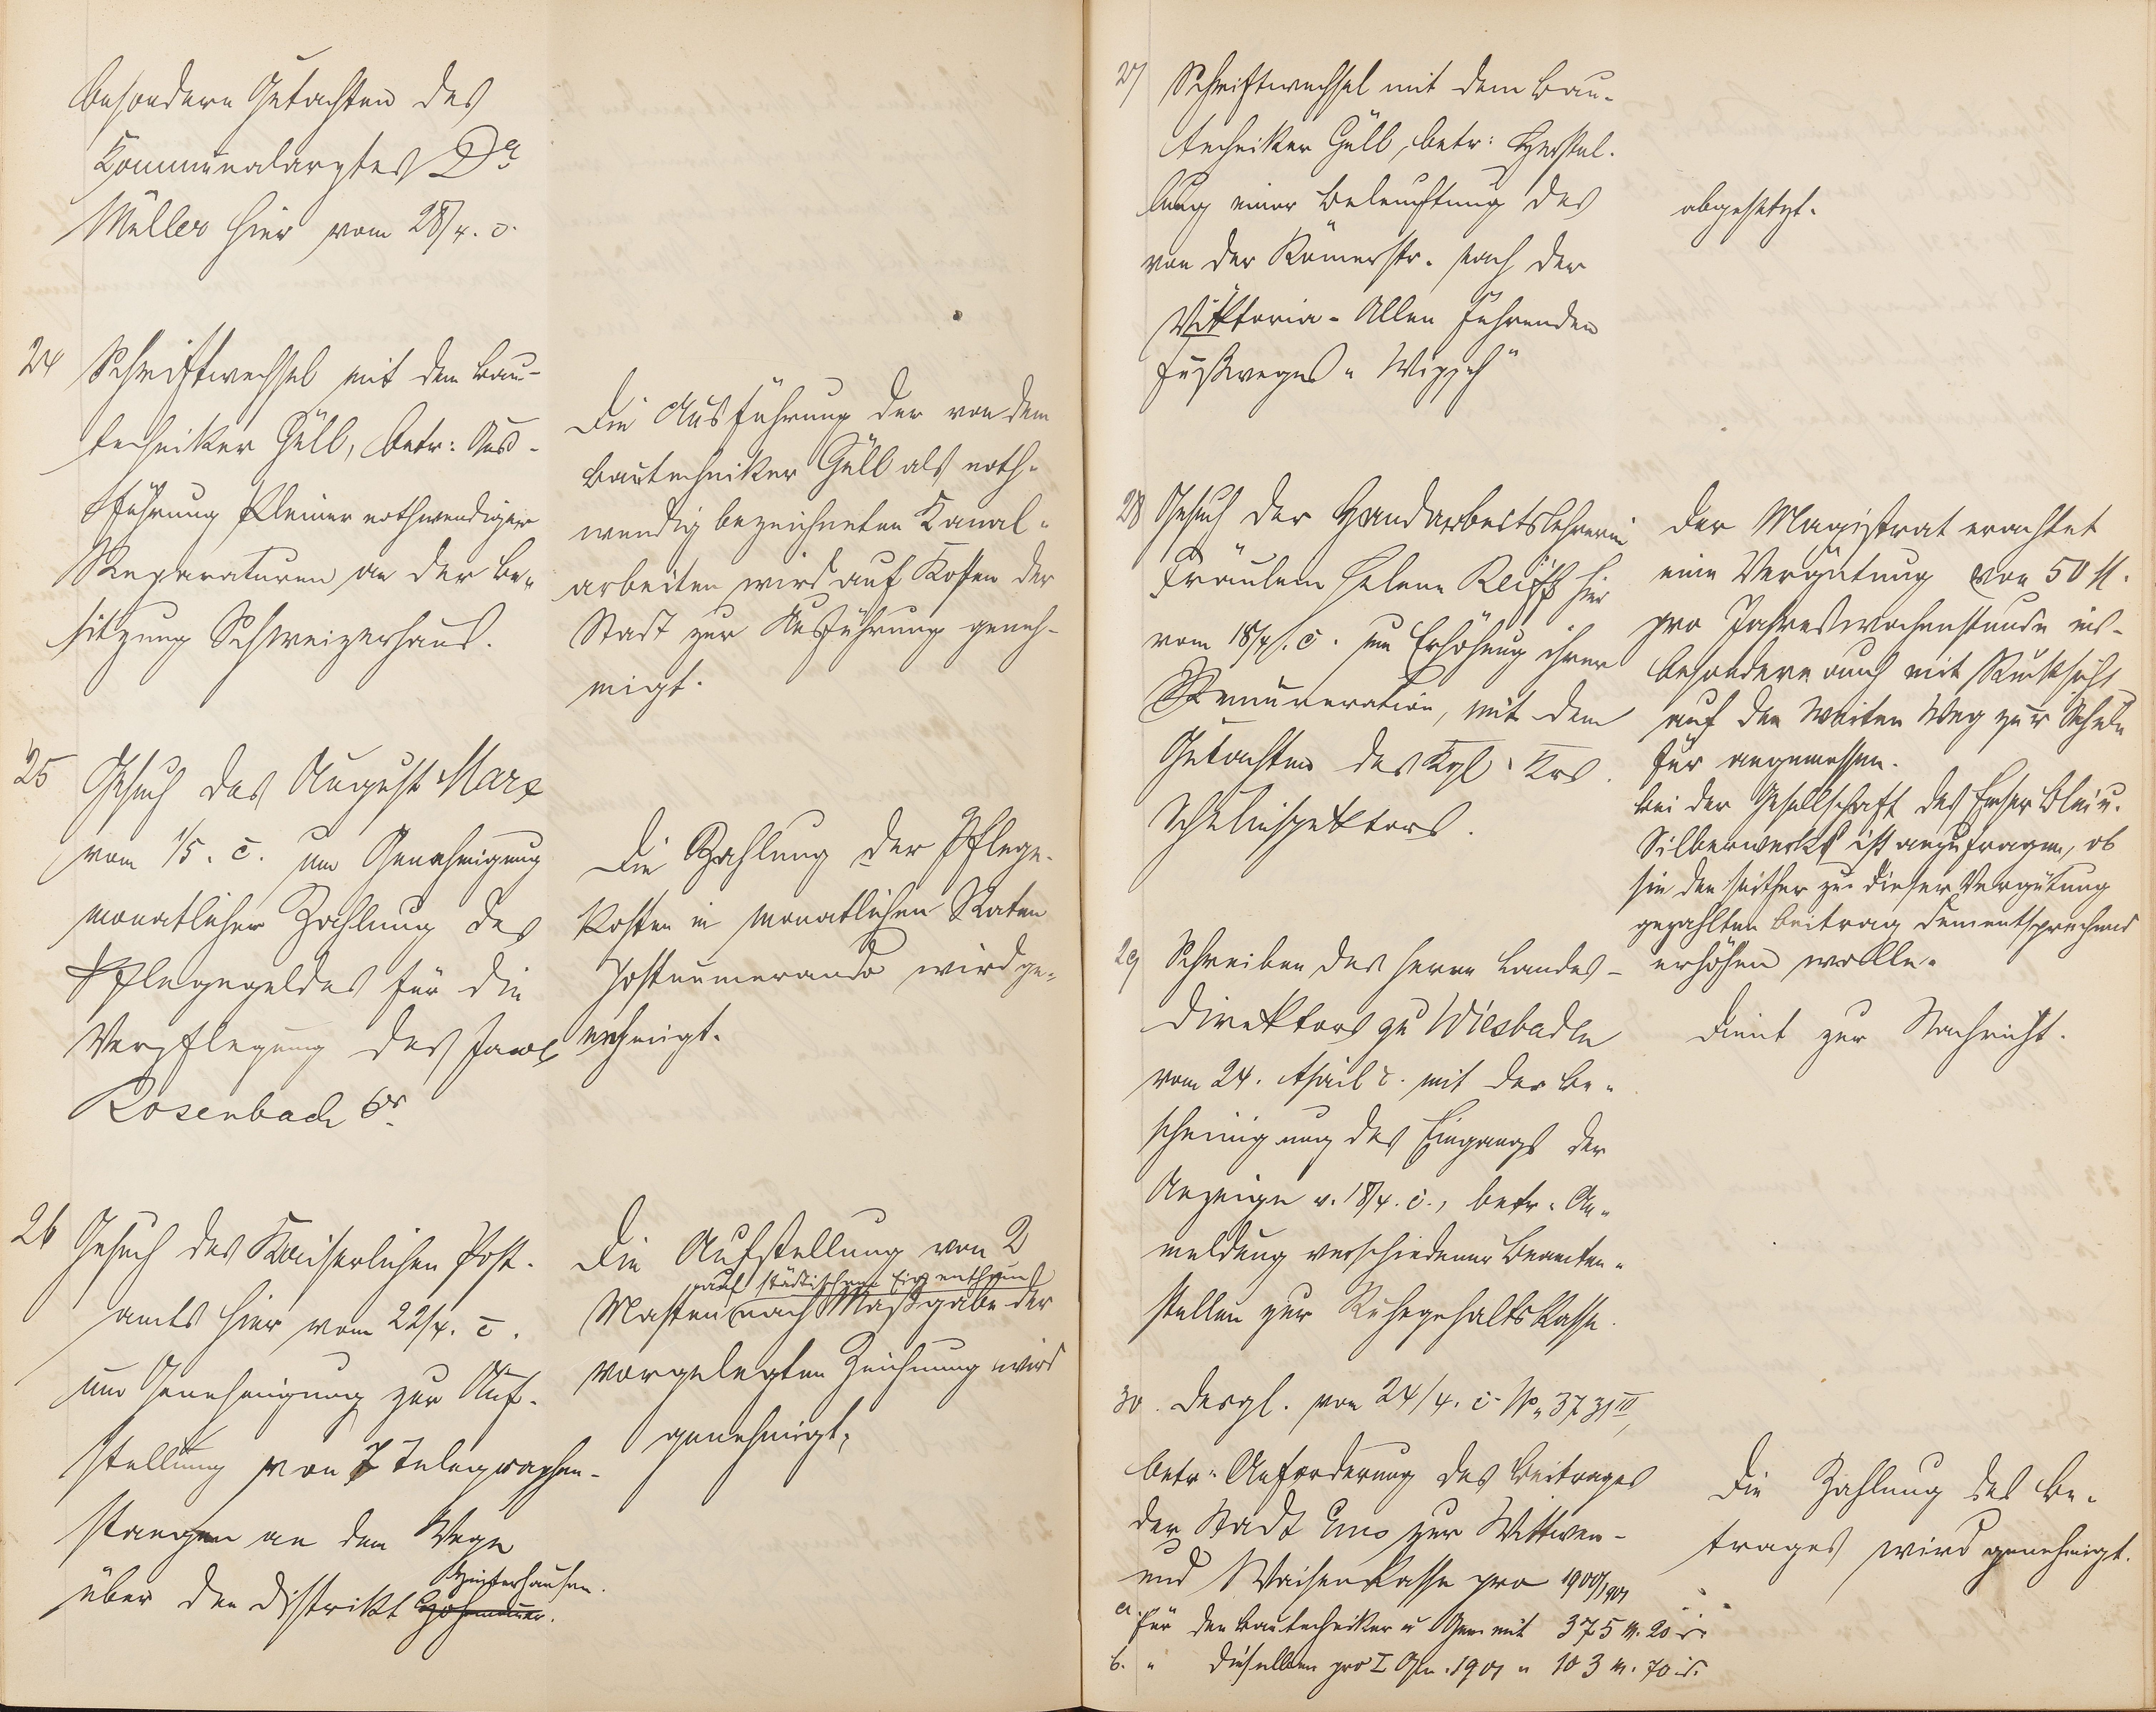 besondern Gutachten des
Kommunalarztes Dr
Müller hier vom 28/4. c.
24 Schriftwechsel mit dem Bau-
techniker Güll, betr: Aus-
führung kleiner nothwendiger
Reparaturen an der Be-
sitzung Schweizerhaus.
Die Ausführung der von dem
Bautechniker Güll als noth-
wendig bezeichneten Kanal-
arbeiten wird auf Kosten der
Stadt zur Ausführung geneh-
migt.
25 Gesuch des August Marx
vom 1/5. c. um Genehmigung
monatlicher Zahlung des
Pflegegeldes für die
Verpflegung des
Rosenbach 6r
Die Zahlung der Pflege-
kosten in monatlichen Raten
postnumerando wird ge-
nehmigt.
26 Gesuch des Kaiserlichen Post-
amts hier vom 22/4. c.
um Genehmigung zur Auf-
stellung von 7 Telegraphen-
stangen an dem Wege
über den Distrikt
Hinterhausen.
Die Aufstellung von 2
auf städtischem Eigenthum
Masten nach Maßgabe der
vorgelegten Zeichnung wird
genehmigt.
27 Schriftwechsel mit dem Bau-
techniker Güll, betr: Herstel-
lung einer Beleuchtung des
von der Römerstr. nach der
Viktoria-Allee führenden
Fußweges "
abgesetzt.
28 Gesuch der Handarbeitslehrerin
Fräulein Helene Reiff hier
vom 18/4. c. um Erhöhung ihrer
Remuneration, mit dem
Gutachten des Kgl. Krs.
Schulinspektors.
Der Magistrat erachtet
eine Vergütung von 50 M.
pro Jahreswochenstunde ins-
besondere auch mit Rücksicht
auf den weiten Weg zur Schule
für angemessen.
Bei der Gesellschaft des Emser Blei u.
Silberwerks ist anzufragen, ob
sie den seither zu dieser Vergütung
gezahlten Beitrag dementsprechend
erhöhen wolle.
29 Schreiben des Herrn Landes-
direktors zu Wiesbaden
vom 24. April c. mit der Be-
scheinigung des Eingangs der
Anzeige v. 18/4. c., betr. An-
meldung verschiedener Beamten-
stellen zur Ruhegehaltskasse.
Dient zur Nachricht.
30. Desgl. vom 24/4. c. No. 3731 III,
betr. Anforderung des Beitrages
der Stadt Ems zur Wittwen-
und Waisenkasse pro 1900/1901
a. für den Bautechniker u Gen. mit 375 M. 20 d.
b. " dieselben pro I Qu. 1901 " 103 M. 70 d.
Die Zahlung des Be-
trages wird genehmigt.